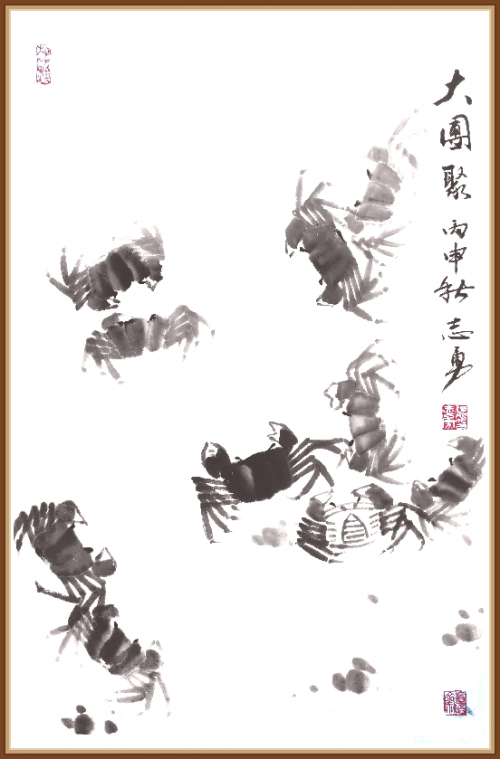 大團聚 丙申秋 志勇